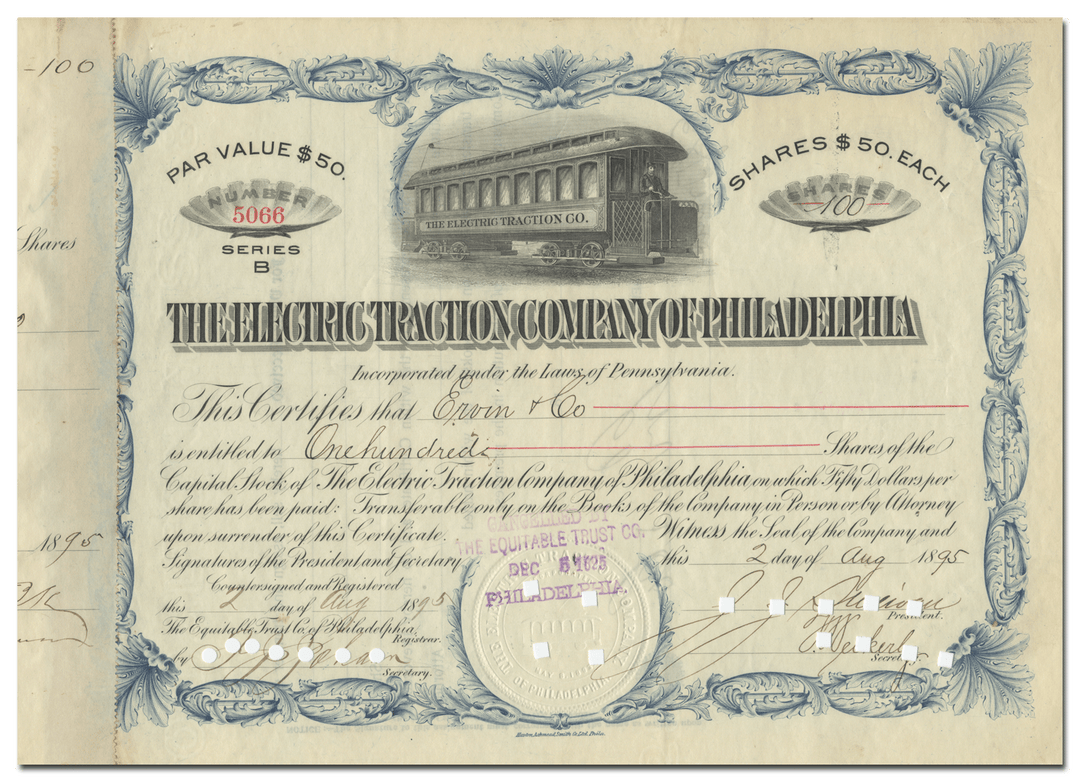 -100
Shares
1895
PAR VALUE $50.
NUMBER
5066
SERIES
B
THE ELECTRIC TRACTION CO.
SHARES $50. EACH
SHARES
-100-
THE ELECTRIC TRACTION COMPANY OF PHILADELPHIA
Incorporated under the Laws of Pennsylvania.
This Certifies that Ervin & Co
is entitled to One hundred Shares of the
Capital Stock of The Electric Traction Company of Philadelphia on which Fifty Dollars per
share has been paid: Transferable only on the Books of the Company in Person or by Attorney
upon surrender of this Certificate. Witness the Seal of the Company and
Signatures of the President and Secretary this 2 day of Aug 1895
CANCELLED BY
THE EQUITABLE TRUST CO.
DEC 5 1895
PHILADELPHIA.
Countersigned and Registered
this 2 day of Aug 1895
The Equitable Trust Co. of Philadelphia,
Registrar.
by
Secretary.
President.
Secretary.
THE ELECTRIC TRACTION COMPANY
OF PHILADELPHIA